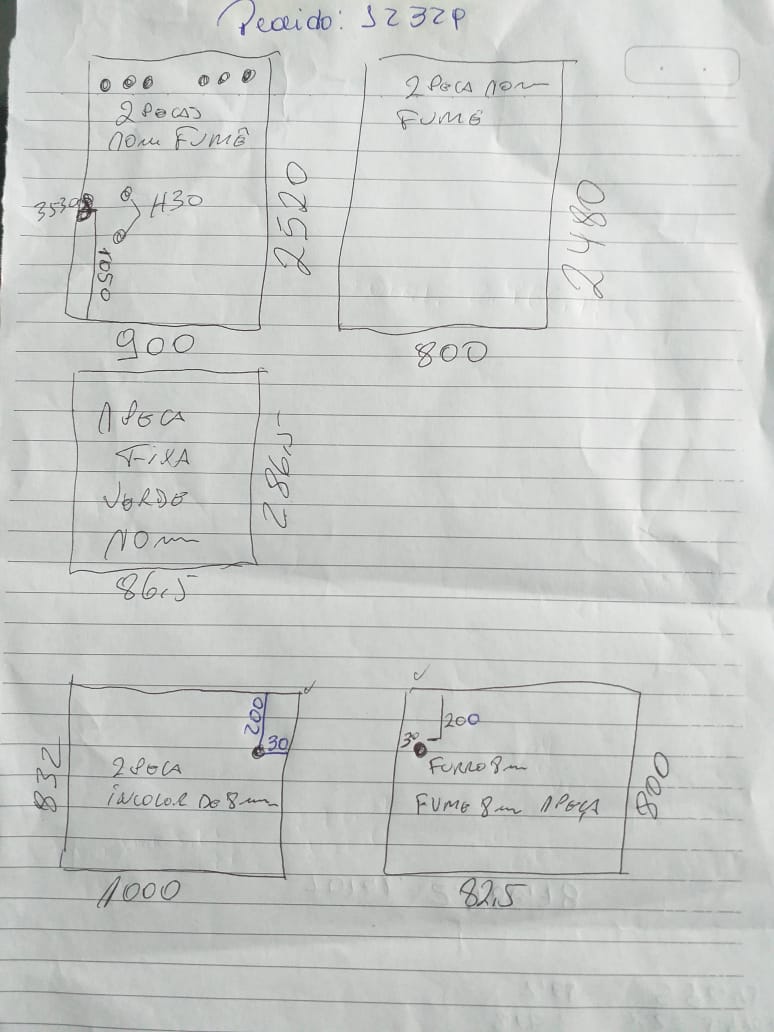 Pedido: 52329
2 PECAS
10mm FUMÊ
3530
H30
1050
2520
900
2 PECA 10mm
FUMÊ
2480
800
1 PECA
FIXA
VERDE
10mm
286,5
86,5
200
30
832
2 PECA
iNCOLOR DE 8mm
1000
200
30
FURRO 8m
FUME 8m 1 PEÇA
800
82,5